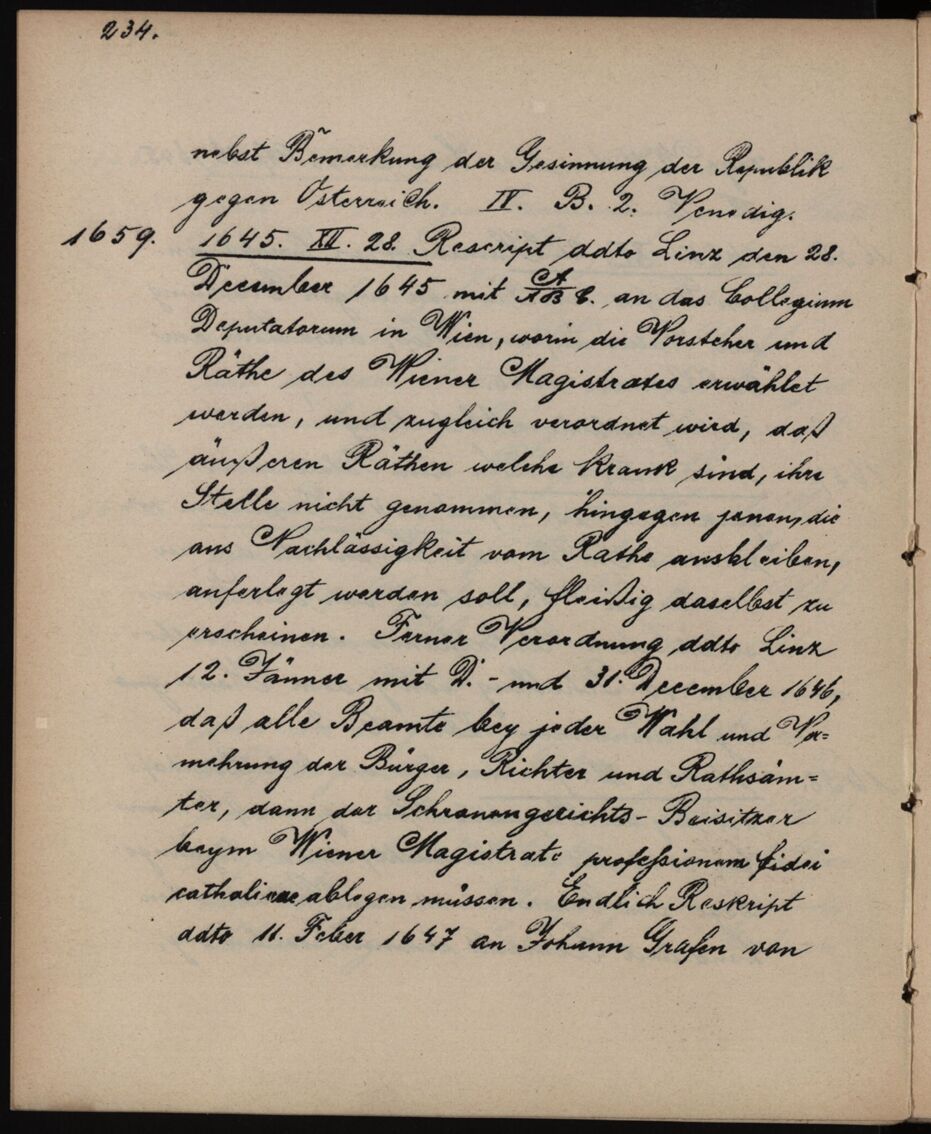 234.
nebst Bemerkung der Gesinnung der Republik
gegen Österreich. IV. B. 2. Venedig.
1659. 1645. XII. 28. Rescript ddto Linz den 28.
December 1645 mit A/AB C. an das Collegium
Deputatorum in Wien, worin die Vorsteher und
Räthe des Wiener Magistrates erwählet
werden, und zugleich verordnet wird, daß
äußeren Räthen welche krank sind, ihre
Stelle nicht genommen, hingegen jenen, die
aus Nachlässigkeit vom Rathe ausbleiben,
auferlegt werden soll, fleißig daselbst zu
erscheinen. Ferner Verordnung ddto Linz
12. Jänner mit D. - und 31. December 1646,
daß alle Beamte bey jeder Wahl und Ver=
mehrung der Bürger, Richter und Rathsäm=
ter, dann der Schranengerichts - Beisitzer
beym Wiener Magistrate professionem fidei
catholicae ablegen müssen. Endlich Reskript
ddto 11. Feber 1647 an Johann Grafen von